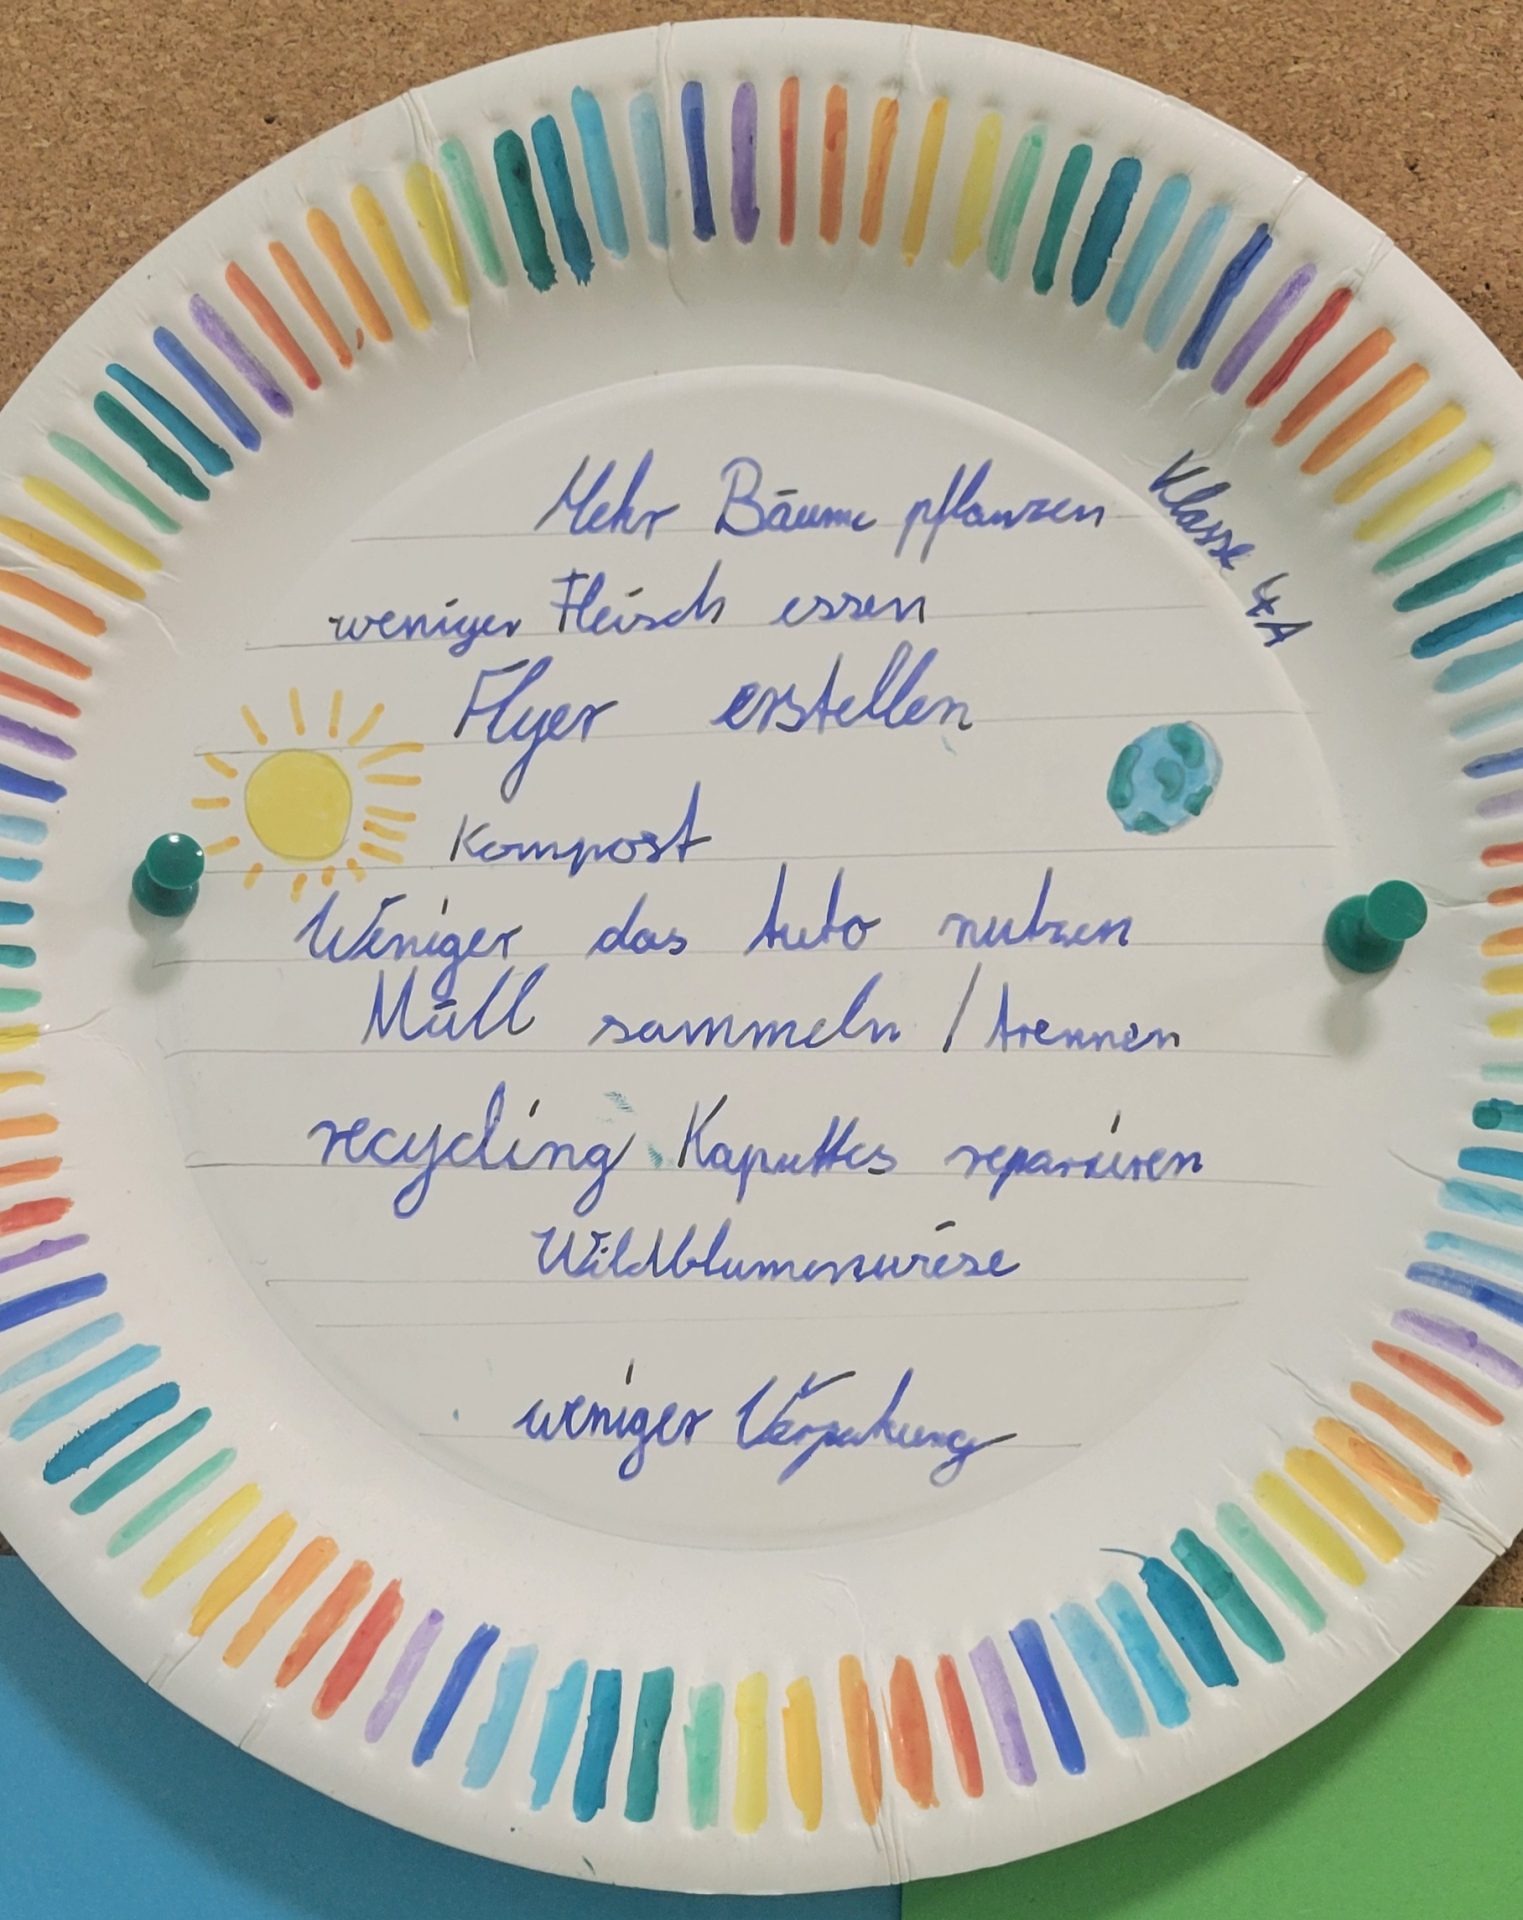 Mehr Bäume pflanzen
Klasse 4A
weniger Fleisch essen
Flyer erstellen
Kompost
Weniger das Auto nutzen
Müll sammeln / trennen
recycling Kaputtes reparieren
Wildblumenwiese
weniger Verpakung